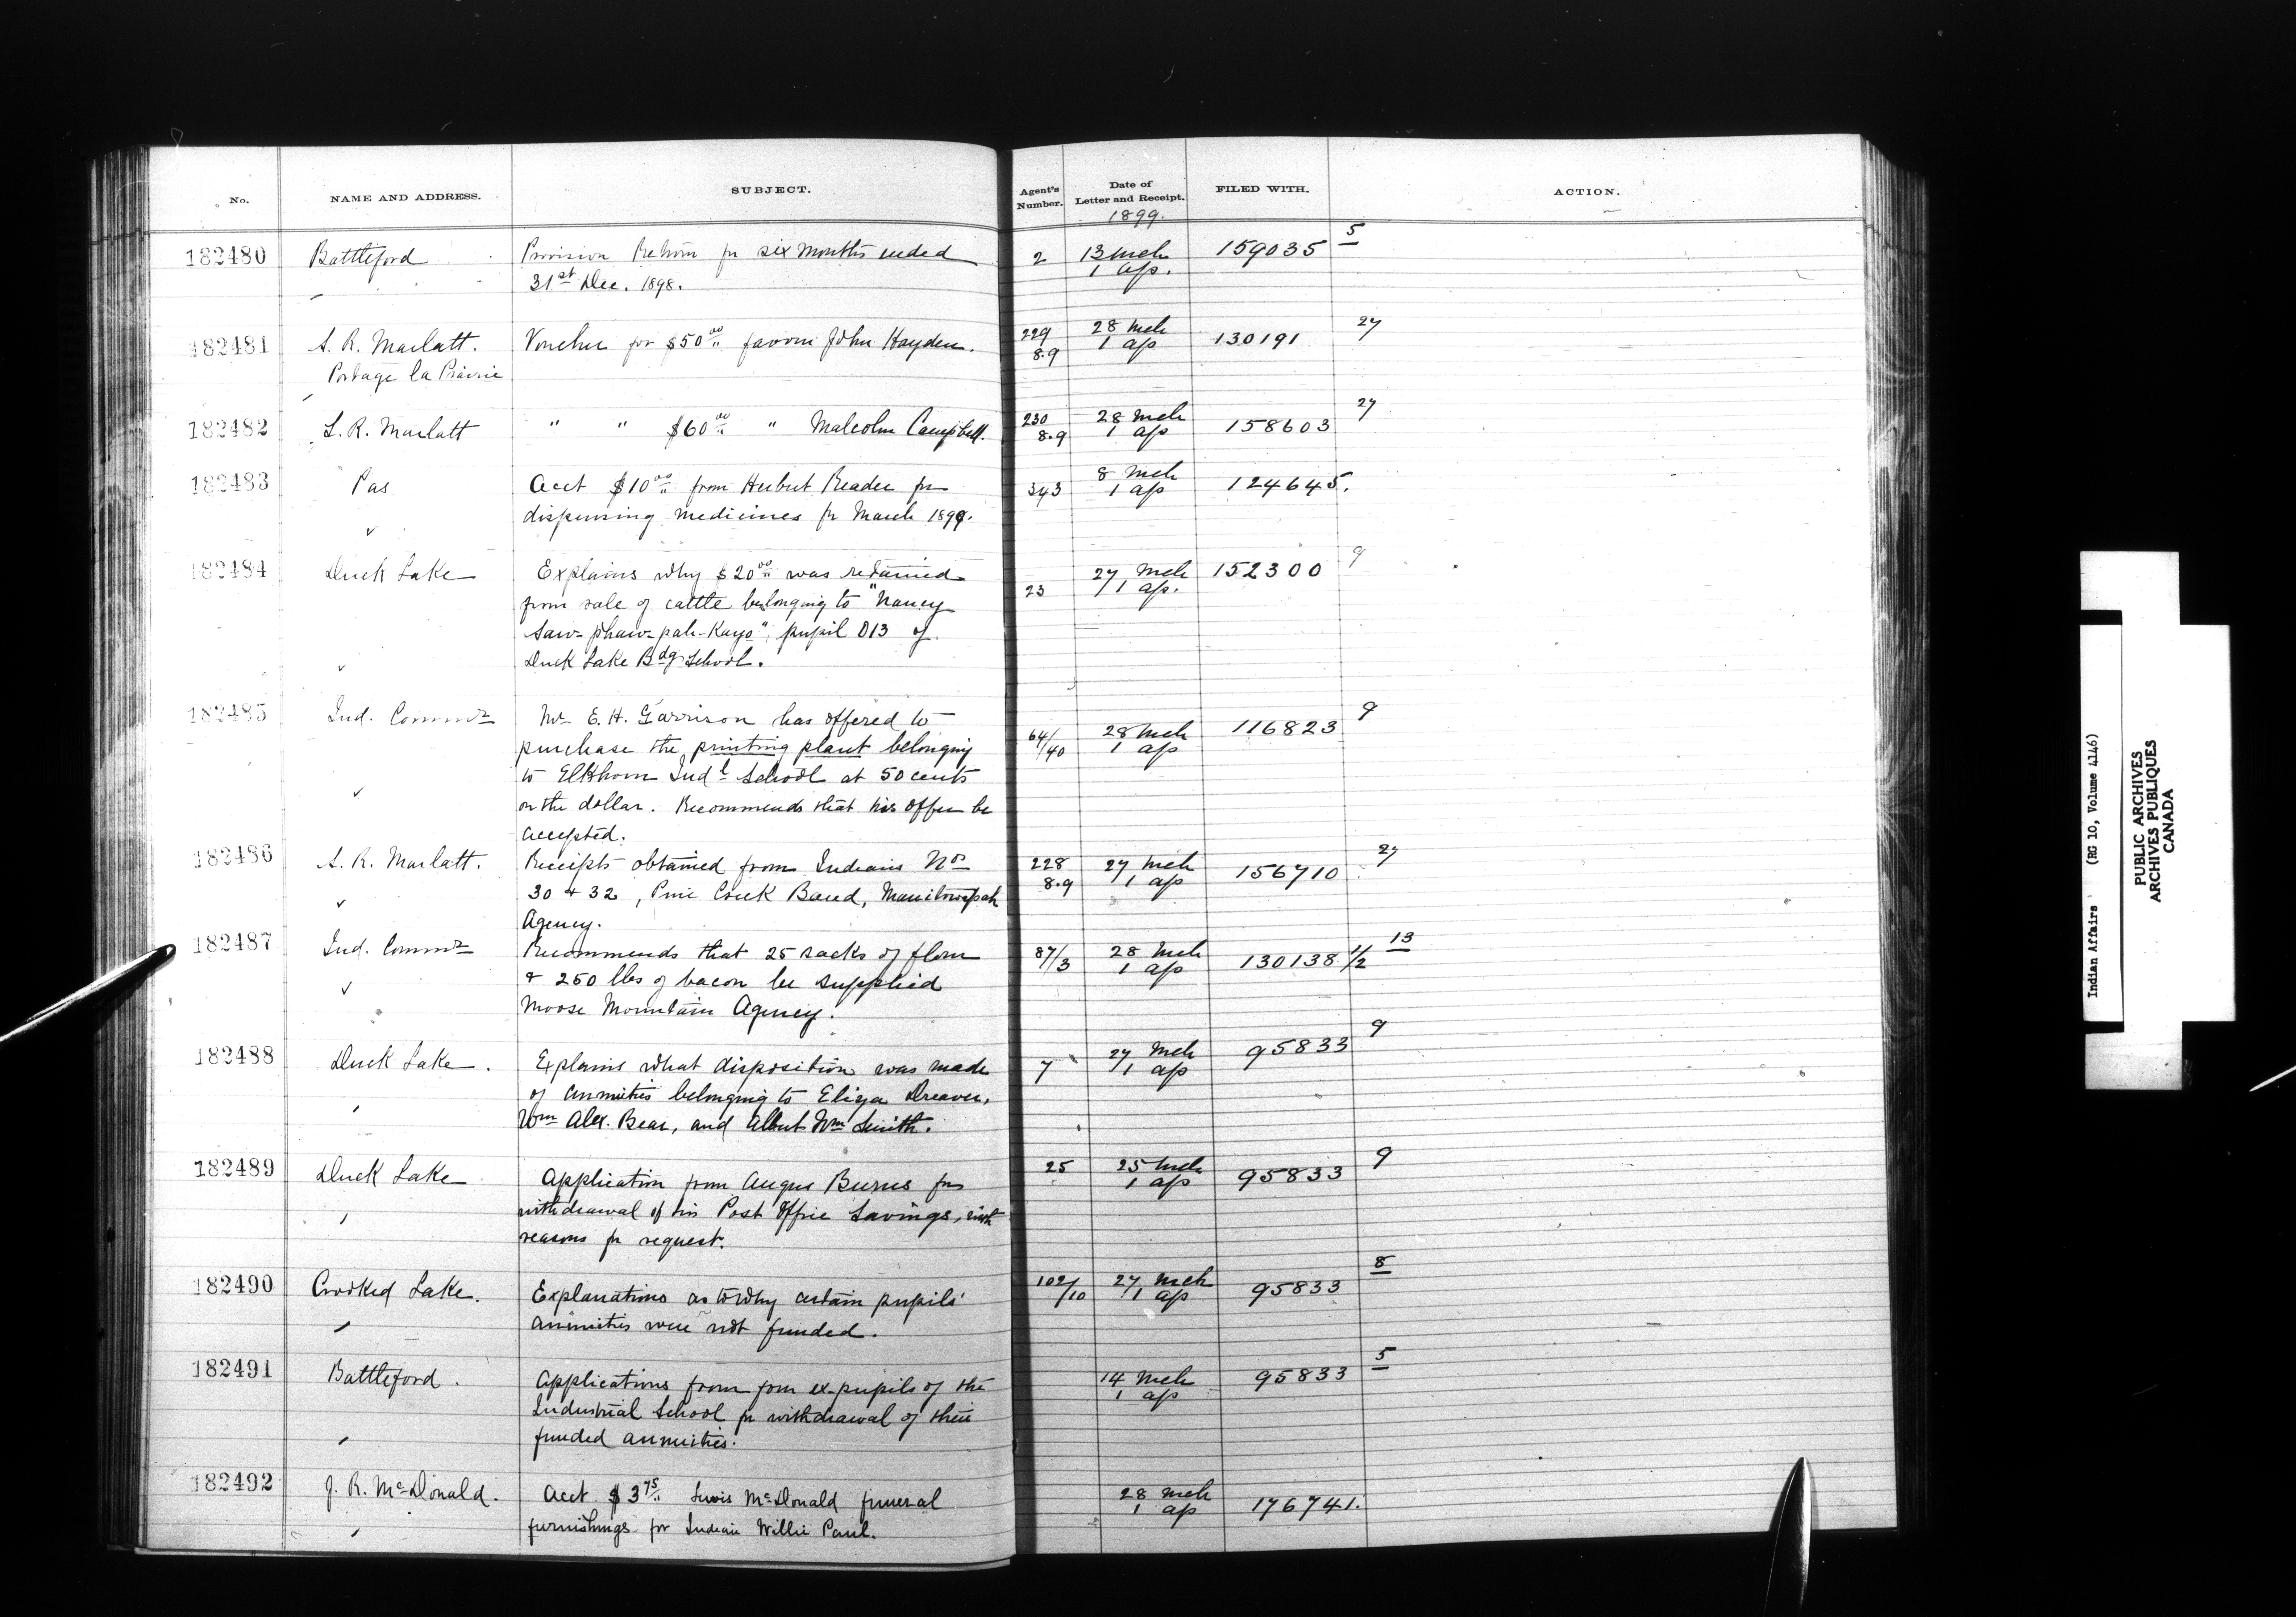 No. NAME AND ADDRESS. SUBJECT. Agent's Number. Date of Letter and Receipt. FILED WITH. ACTION.
1899.
182480 Battleford Provision Return for six months ended 2 13 Mch 159035 5
31st Dec. 1898. 1 ap.
182481 S. R. Marlatt. Voucher for $50 00 favour John Hayden. 229 28 Mch 130191 27
Portage la Prairie 8.9 1 ap
182482 S. R. Marlatt " " $60 00 " Malcolm Campbell. 230 28 Mch 158603 27
8.9 1 ap
182483 Pas Acct $10 00 from Herbert Reader for 343 8 Mch 124645.
dispensing medicines for March 1899. 1 ap
182484 Duck Lake Explains why $20 00 was retained 23 27 Mch 152300 9
from sale of cattle belonging to "Nancy 1 ap.
Saw-phaw-pah-Kayo", pupil 013 of
Duck Lake Bdg School.
182485 Ind. Commr Mr E. H. Garrison has offered to 64/40 28 Mch 116823 9
purchase the printing plant belonging 1 ap
to Elkhorn Indl School at 50 cents
on the dollar. Recommends that his offer be
accepted.
182486 S. R. Marlatt. Receipts obtained from Indians Nos 228 27 Mch 156710 27
30 + 32, Pine Creek Band, Manitowapah 8.9 1 ap
Agency.
182487 Ind. Commr Recommends that 25 sacks of flour 87/3 28 Mch 130138 1/2 13
+ 250 lbs of bacon be supplied 1 ap
Moose Mountain Agency.
182488 Duck Lake. Explains what disposition was made 7 27 Mch 95833 9
of annuities belonging to Eliza Dreaver, 1 ap
Wm Alex. Bear, and Albert Wm Smith.
182489 Duck Lake Application from Angus Burns for 25 25 Mch 95833 9
withdrawal of his Post Office Savings, with 1 ap
reasons for request.
182490 Crooked Lake. Explanations as to why certain pupils' 102/10 27 Mch 95833 8
annuities were not funded. 1 ap
182491 Battleford. Applications from four ex-pupils of the 14 Mch 95833 5
Industrial School for withdrawal of their 1 ap
funded annuities.
182492 J. R. McDonald. Acct $3 75 Lewis McDonald funeral 28 Mch 176741.
furnishings for Indian Willie Paul. 1 ap
Indian Affairs (RG 10, Volume 4146)
PUBLIC ARCHIVES
ARCHIVES PUBLIQUES
CANADA